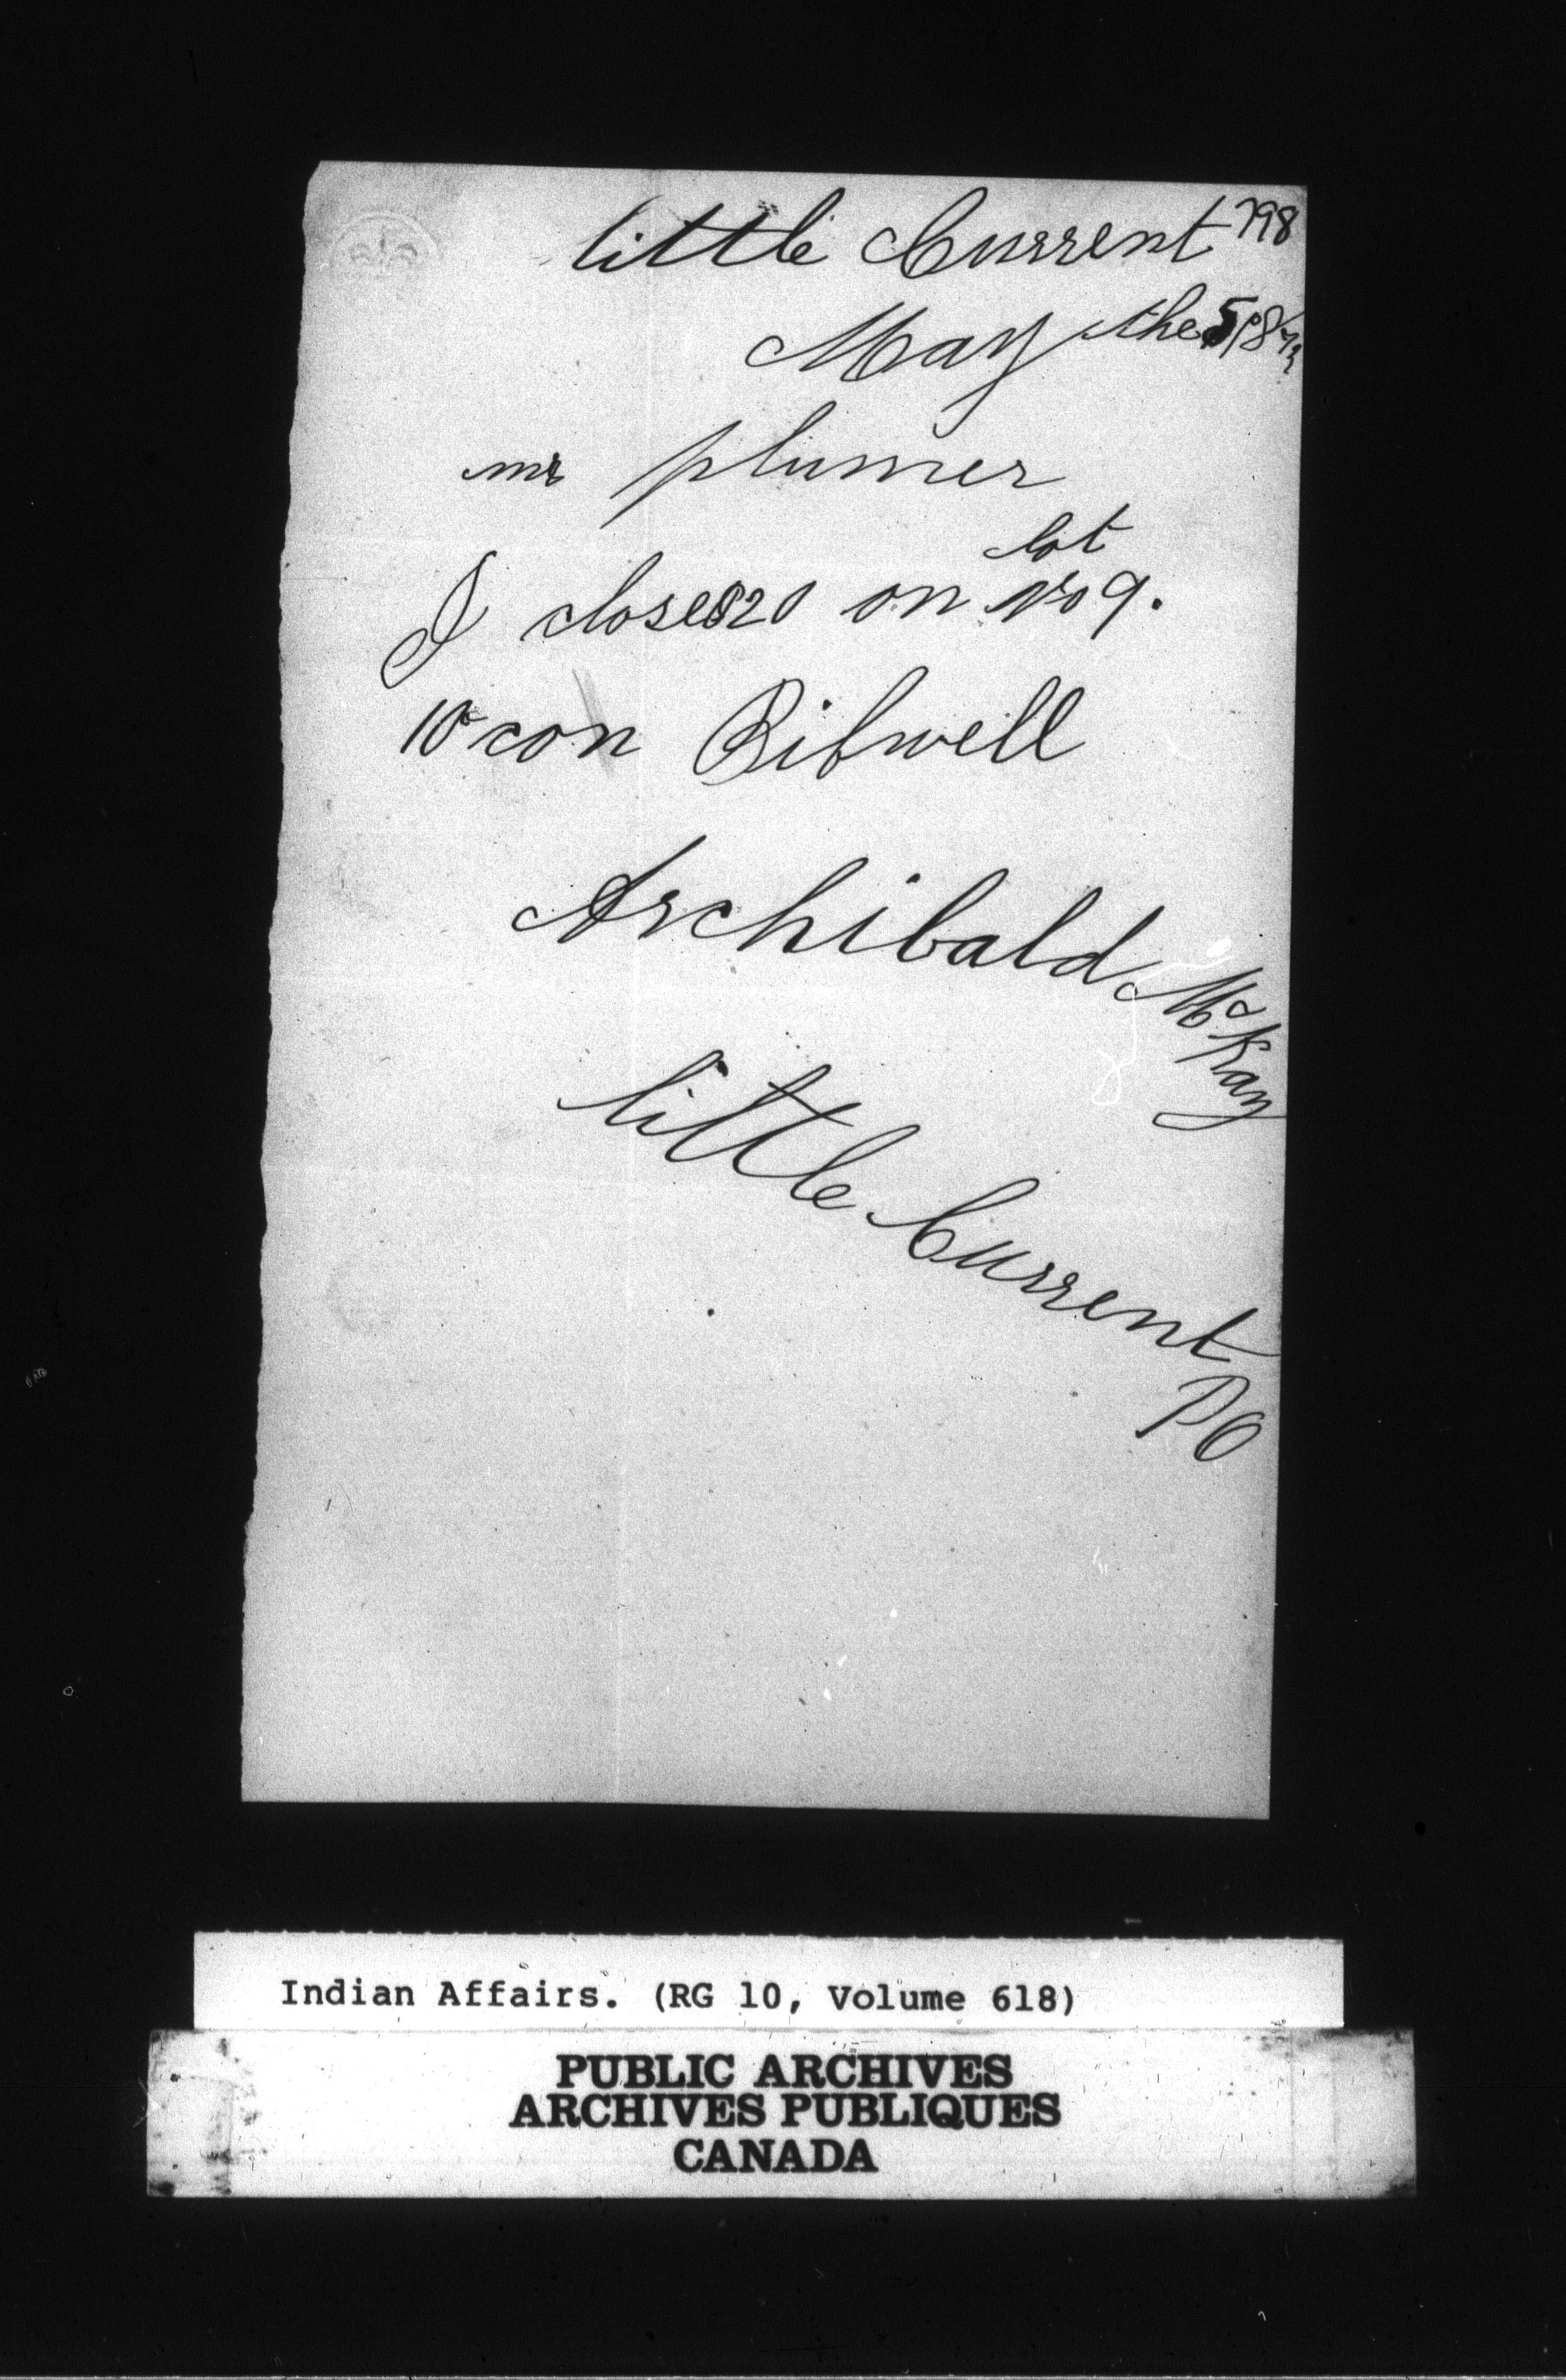 little Current 798
May the 5 1873
mr plumer
lot
I close $20 on No 9.
10 con Bibwell
Archibald McKay
little Current
PO
Indian Affairs. (RG 10, Volume 618)
PUBLIC ARCHIVES
ARCHIVES PUBLIQUES
CANADA